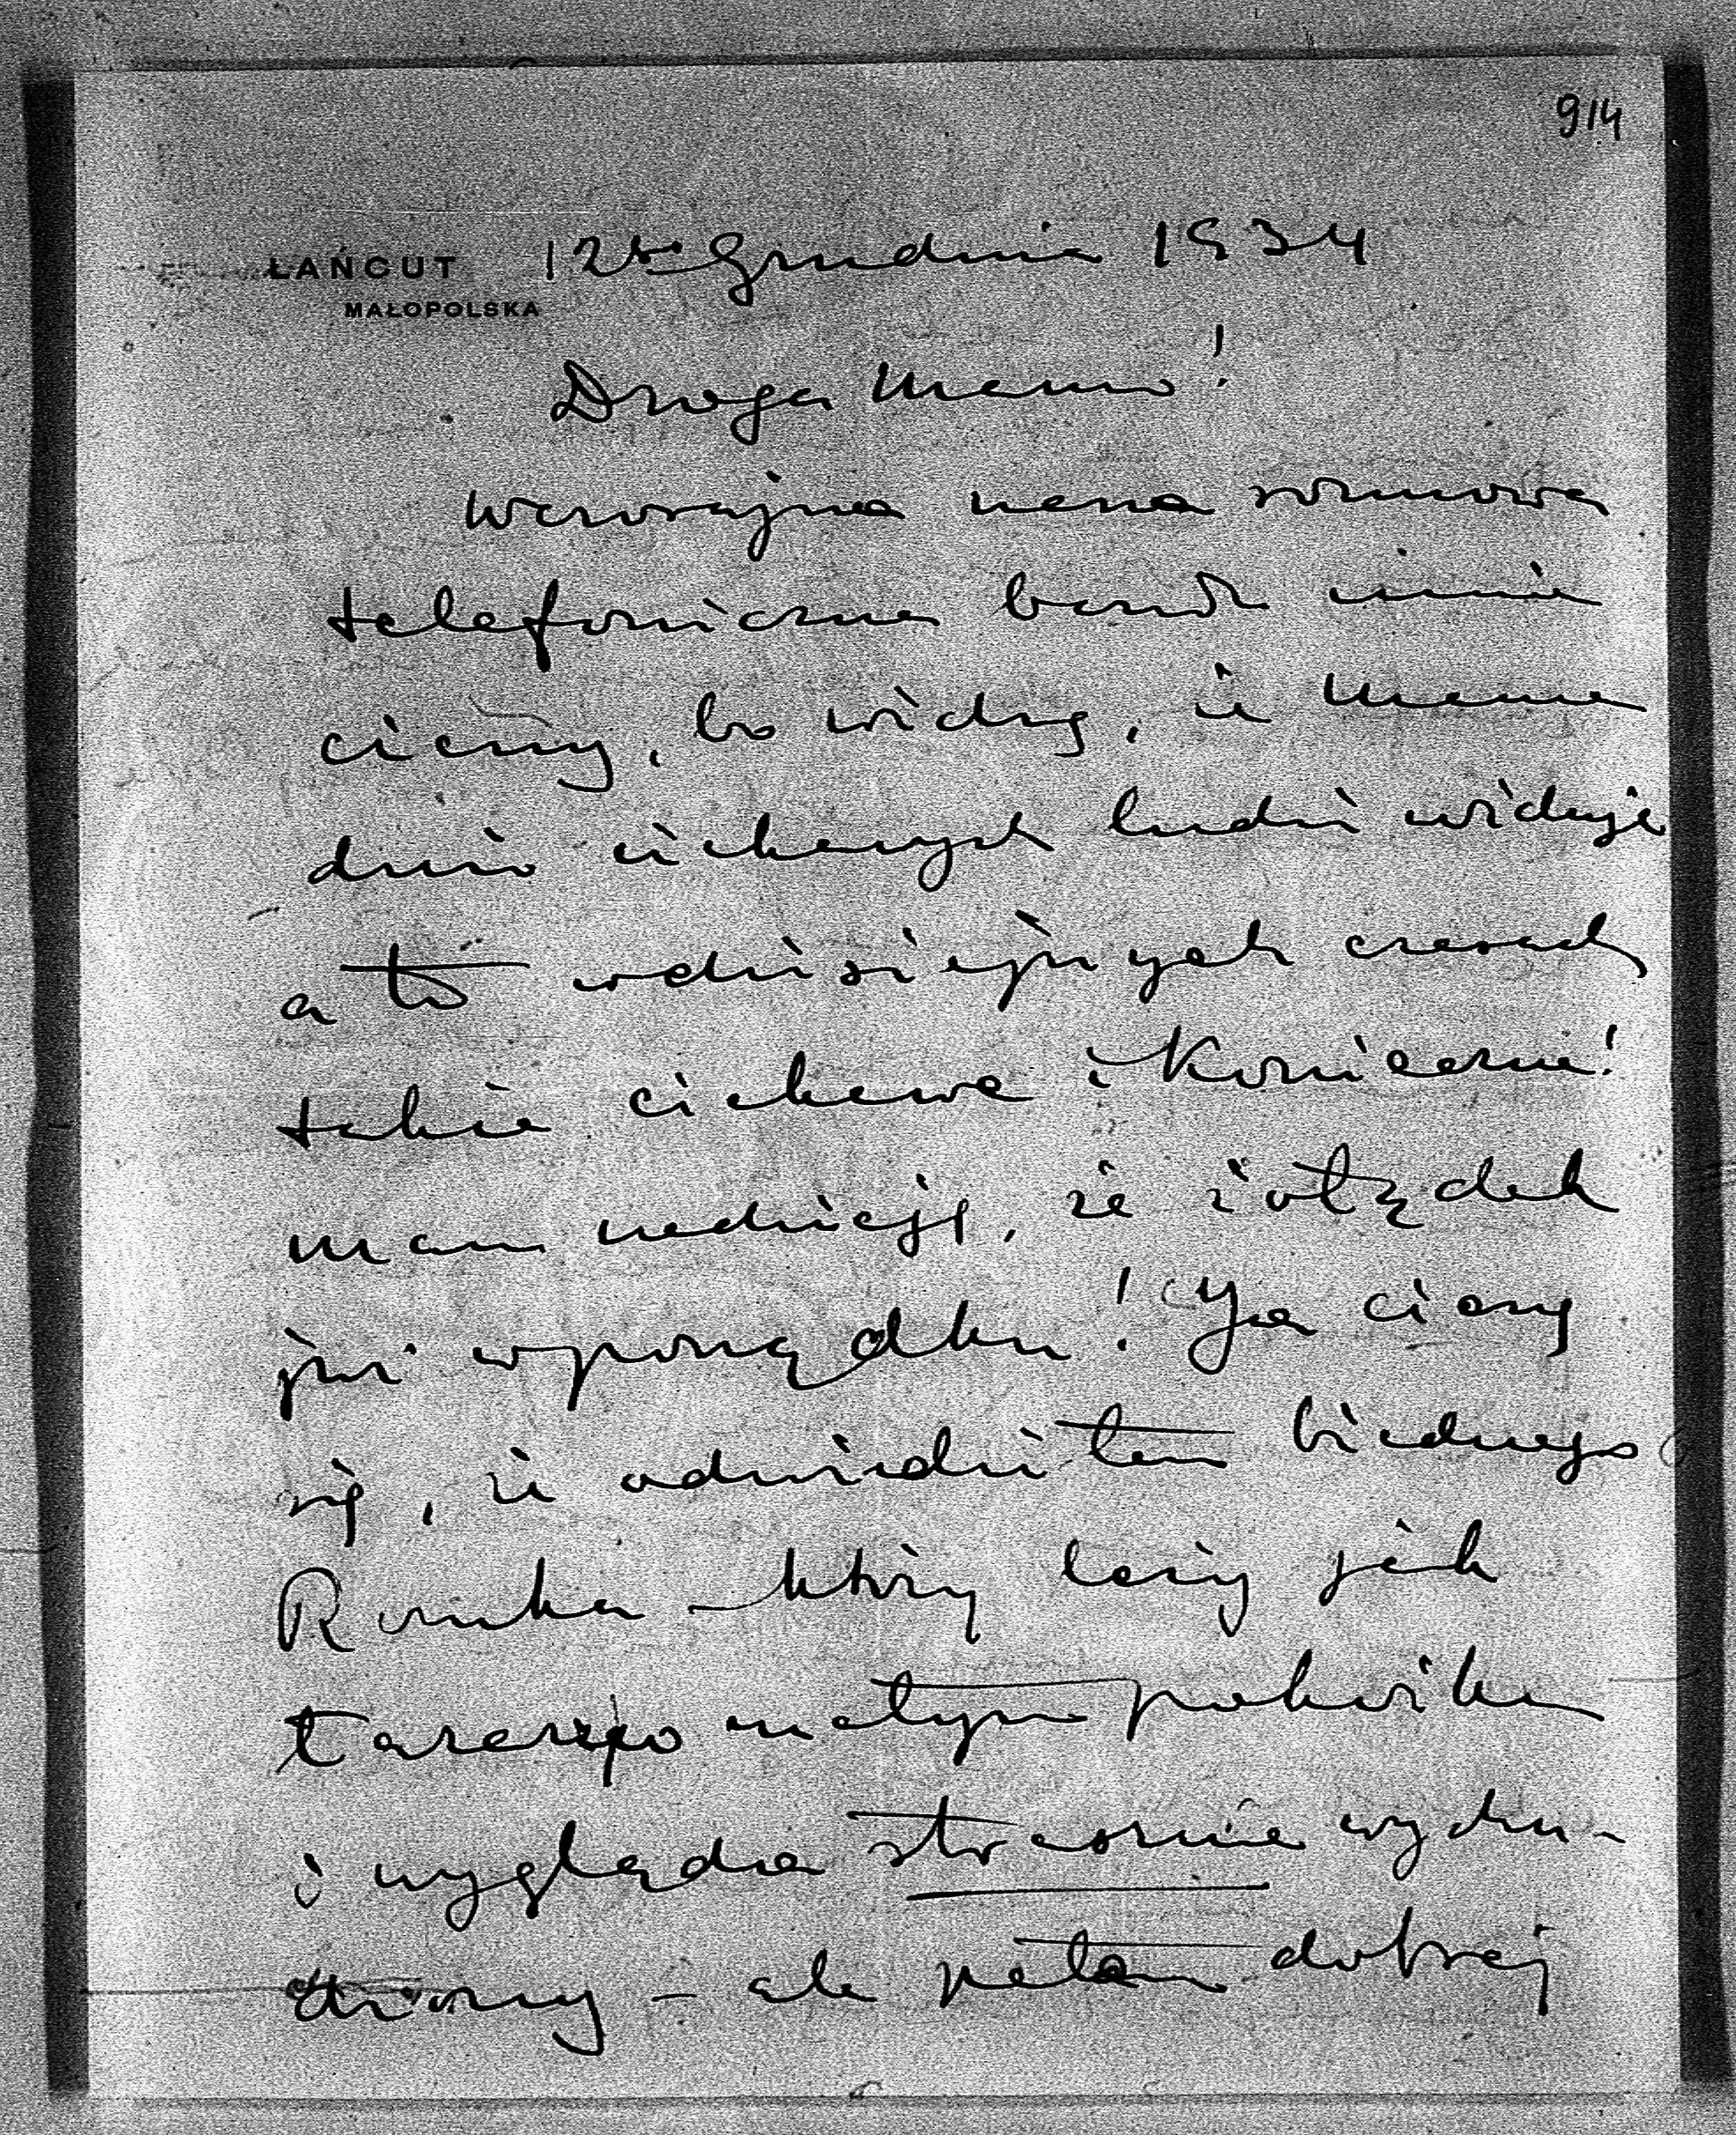 914
ŁAŃCUT 12 Grudnia 1934
MAŁOPOLSKA
Droga Mamo!
Wczorajsza nasza rozmowa
telefoniczna bardzo mnie
cieszy, bo widzę, że Mama
dużo ciekawych ludzi widuje
a to w dzisiejszych czasach
takie ciekawe i konieczne!
mam nadzieję, że żołądek
już w porządku! Ja cieszę
się, że odwiedziłem biednego
Romka – który leży jak
w małym pokoiku
i wygląda strasznie wychu-
dzony – ale pełen dobrej